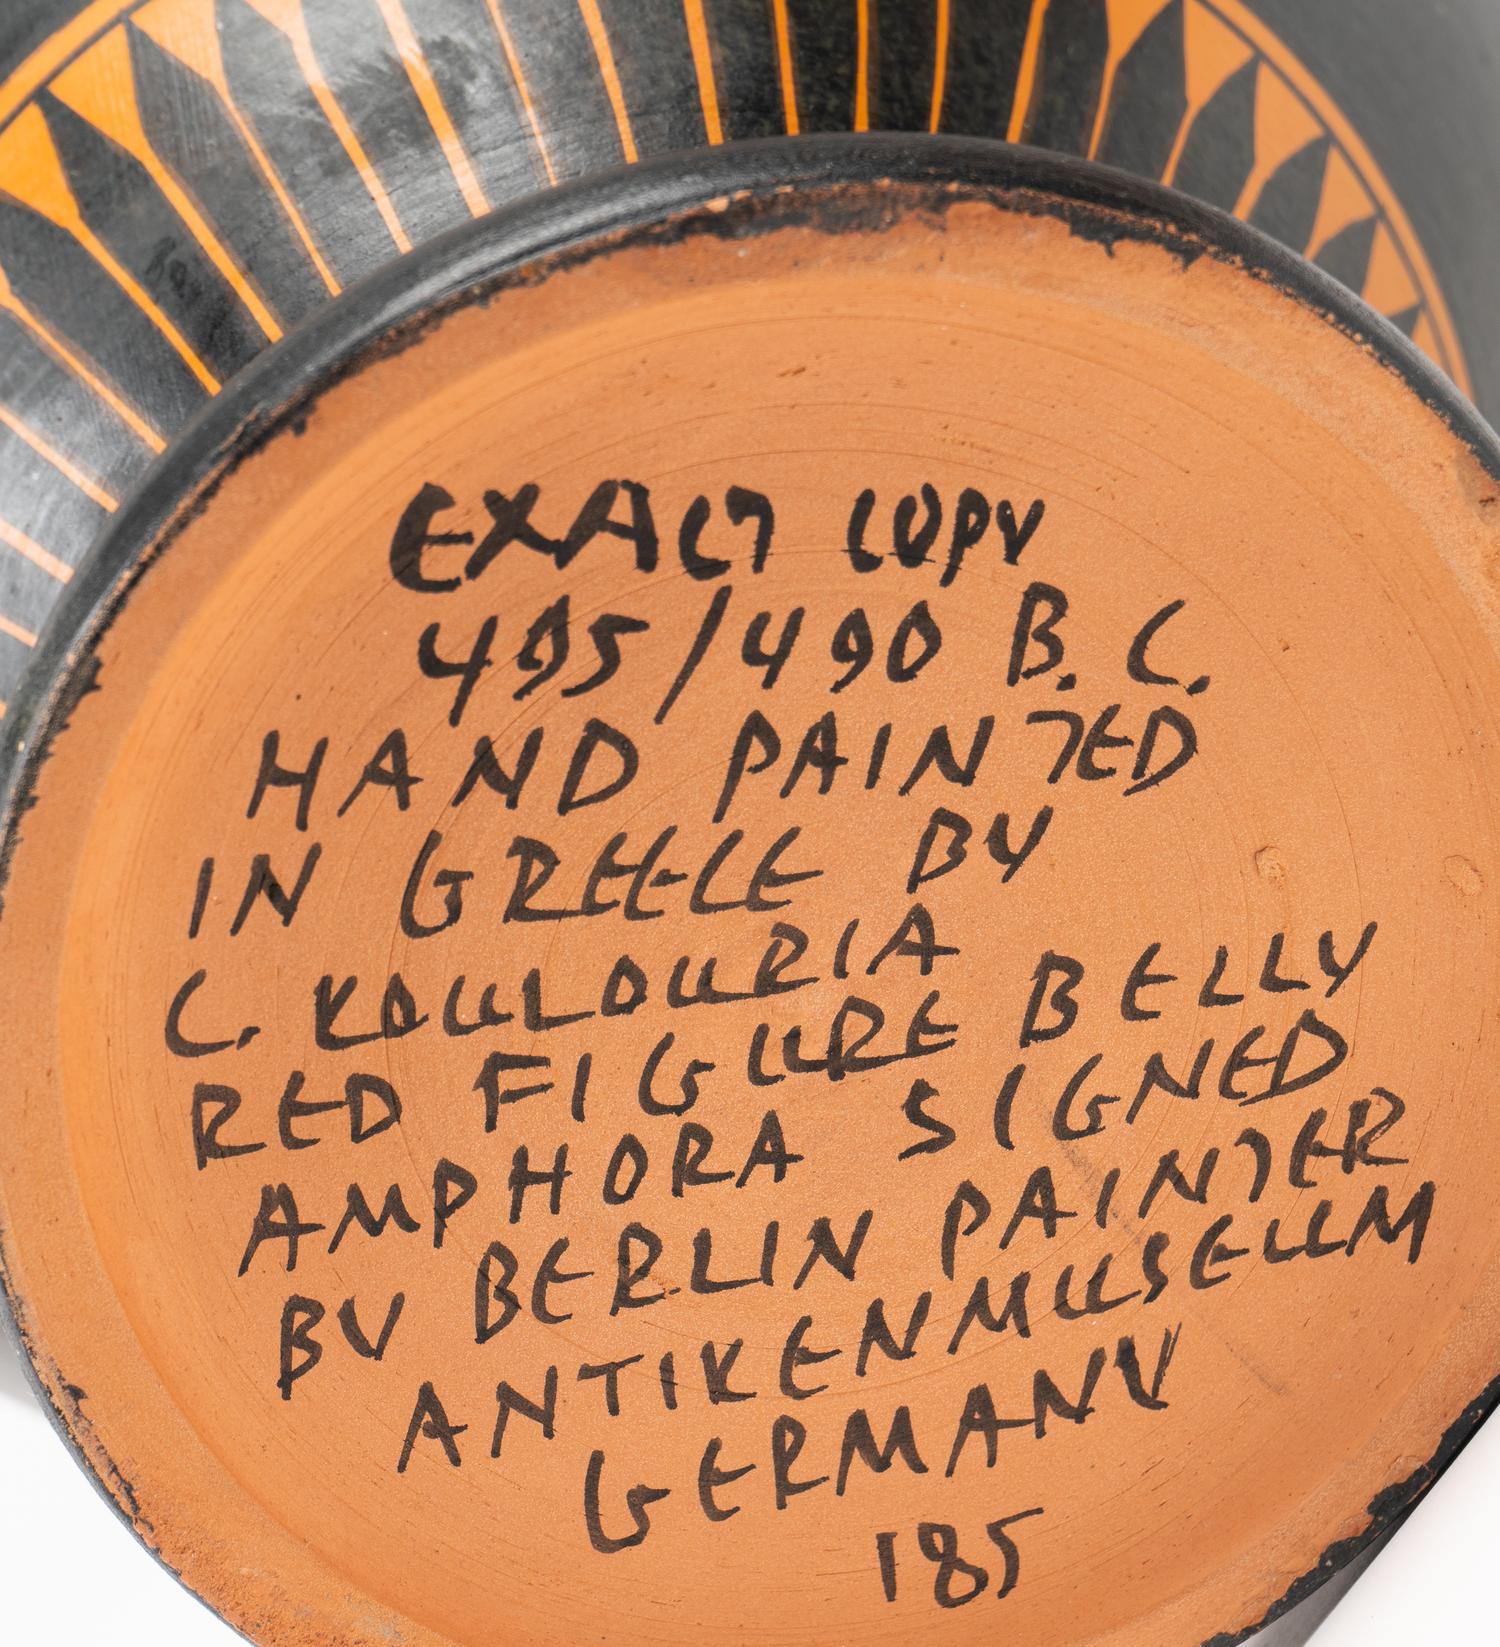 EXACT COPY
495/490 B.C.
HAND PAINTED
IN GREECE BY
C. KOULOURIA
RED FIGURE BELLY
AMPHORA SIGNED
BY BERLIN PAINTER
ANTIKENMUSEUM
GERMANY
185